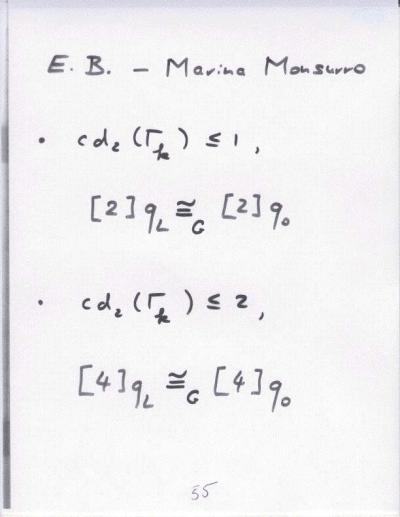 E. B. – Marina Monsurro
• cd₂(Γₖ) ≤ 1,
[2] q_L ≅_G [2] q₀
• cd₂(Γₖ) ≤ 2,
[4] q_L ≅_G [4] q₀
55